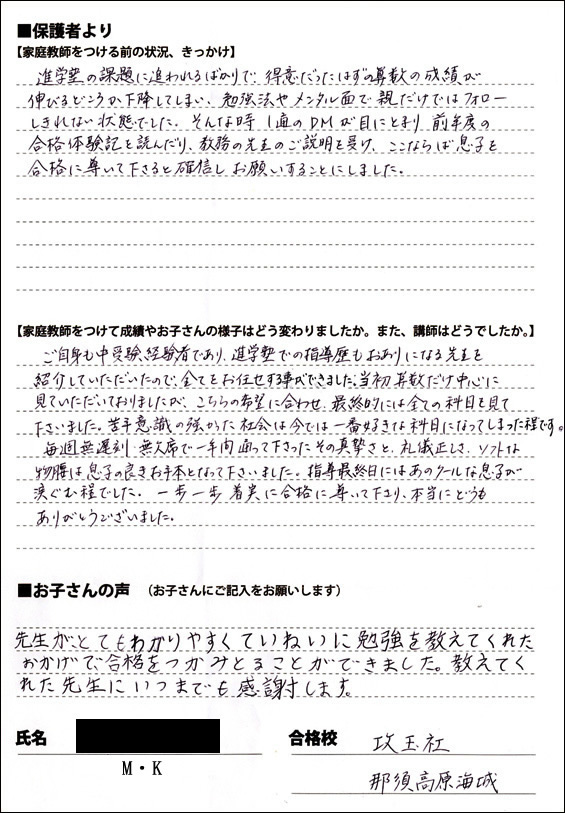 ■保護者より
【家庭教師をつける前の状況、きっかけ】
進学塾の課題に追われるばかりで、得意だったはずの算数の成績が
伸びるどころか下降してしまい、勉強法やメンタル面で親だけではフォロー
しきれない状態でした。そんな時 1通のDMが目にとまり 前年度の
合格体験記を読んだり、教務の先生のご説明を受け、ここならば息子を
合格に導いて下さると確信しお願いすることにしました。
【家庭教師をつけて成績やお子さんの様子はどう変わりましたか。また、講師はどうでしたか。】
ご自身も中受験経験者であり、進学塾での指導歴もおありになる先生を
紹介していただいたので、全てをお任せする事ができました。当初算数だけ中心に
見ていただいておりましたが、こちらの希望に合わせ、最終的には全ての科目を見て
下さいました。苦手意識の強かった社会は今では一番好きな科目になってしまった程です。
毎週無遅刻 無欠席で一年間通って下さったその真摯さと、礼儀正しさ、ソフトな
物腰は息子の良きお手本となって下さいました。指導最終日にはあのクールな息子が
涙ぐむ程でした。一歩一歩 着実に合格に導いて下さり、本当にどうも
ありがとうございました。
■お子さんの声 （お子さんにご記入をお願いします）
先生がとてもわかりやすくていねいに勉強を教えてくれた
おかげで、合格をつかみとることができました。教えてく
れた先生にいつまでも感謝します。
氏名
M・K
合格校 攻玉社
那須高原海城